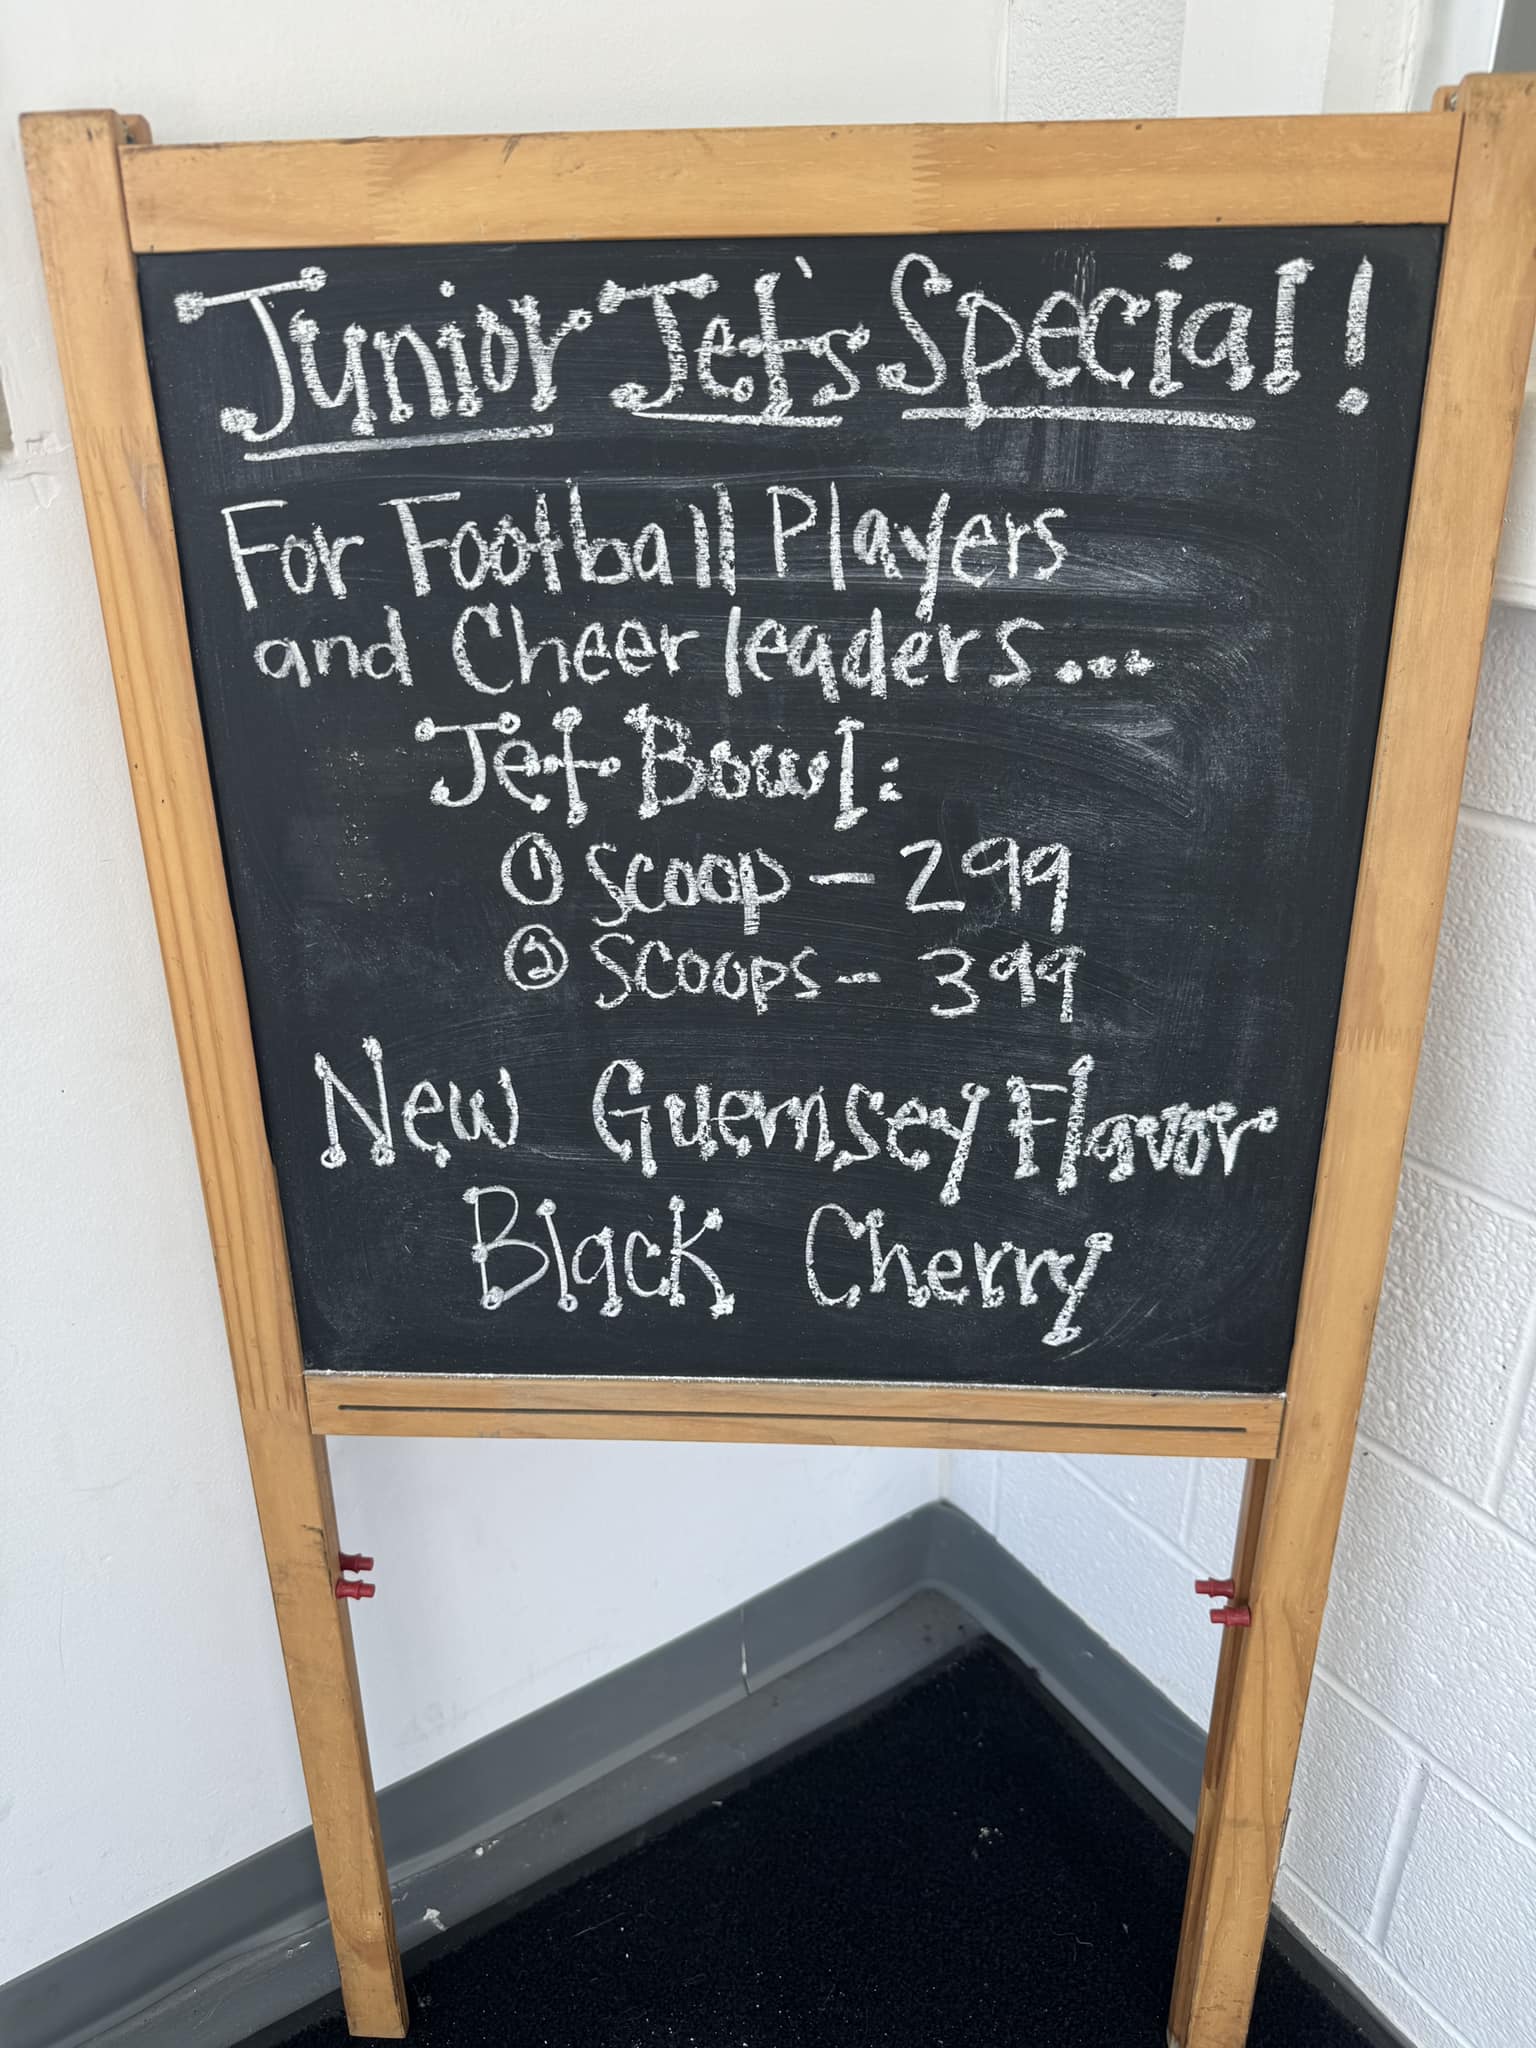 Junior Jet's Special!
For Football Players
and Cheerleaders...
Jet Bowl:
① scoop - 299
② scoops - 399
New Guernsey Flavor
Black Cherry